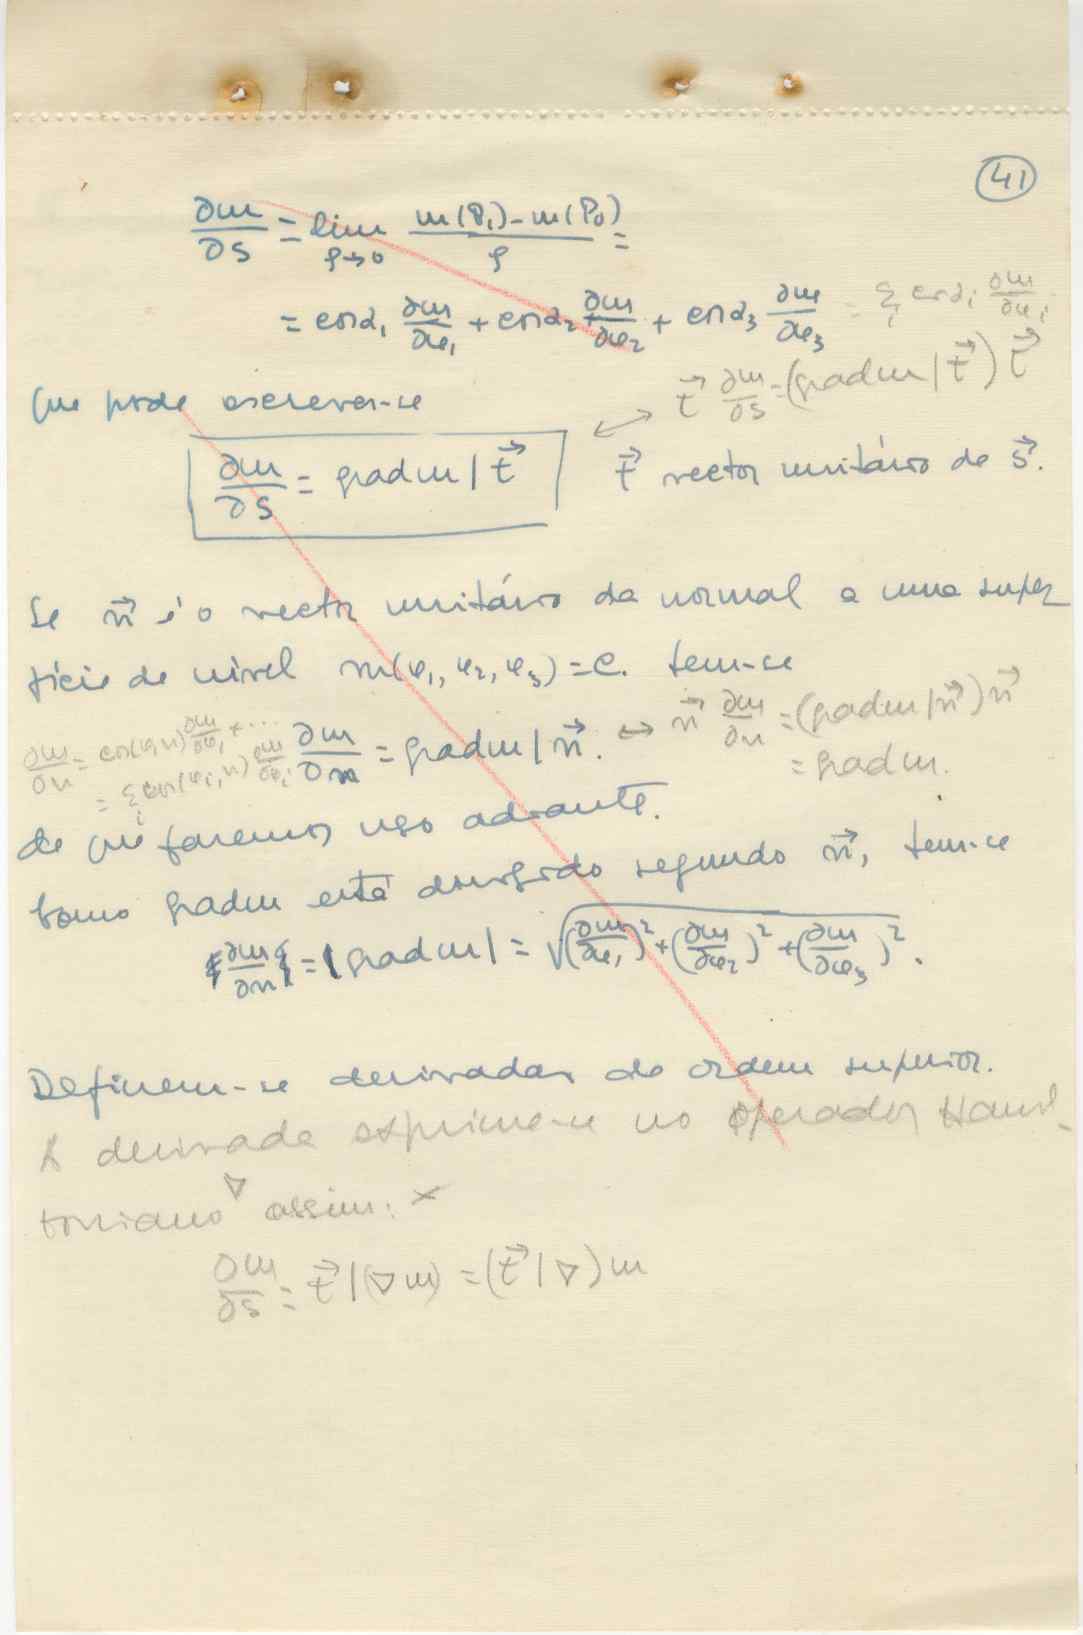 41
∂m/∂s = lim ρ→0 (m(P₁) - m(P₀))/ρ =
= cos α₁ ∂m/∂φ₁ + cos α₂ ∂m/∂φ₂ + cos α₃ ∂m/∂φ₃ = Σᵢ cos αᵢ ∂m/∂φᵢ
que pode escrever-se
↔ t⃗ ∂m/∂s = (grad m | t⃗) t⃗
∂m/∂s = grad m | t⃗
t⃗ vector unitário de s⃗.
Se n⃗ é o vector unitário da normal a uma super
fície de nível m(φ₁, φ₂, φ₃) = C. tem-se
∂m/∂n = cos(φ₁n) ∂m/∂φ₁ + ...
= Σᵢ cos(φᵢ, n) ∂m/∂φᵢ
∂m/∂n = grad m | n⃗. ↔ n⃗ ∂m/∂n = (grad m | n⃗) n⃗
= grad m.
de que faremos uso adiante.
Como grad m está dirigido segundo n⃗, tem-se
|∂m/∂n| = |grad m| = √((∂m/∂φ₁)² + (∂m/∂φ₂)² + (∂m/∂φ₃)²).
Definem-se derivadas de ordem superior.
A derivada exprime-se no operador Hamil-
toniano ∇ assim: ×
∂m/∂s = t⃗ | (∇m) = (t⃗ | ∇) m